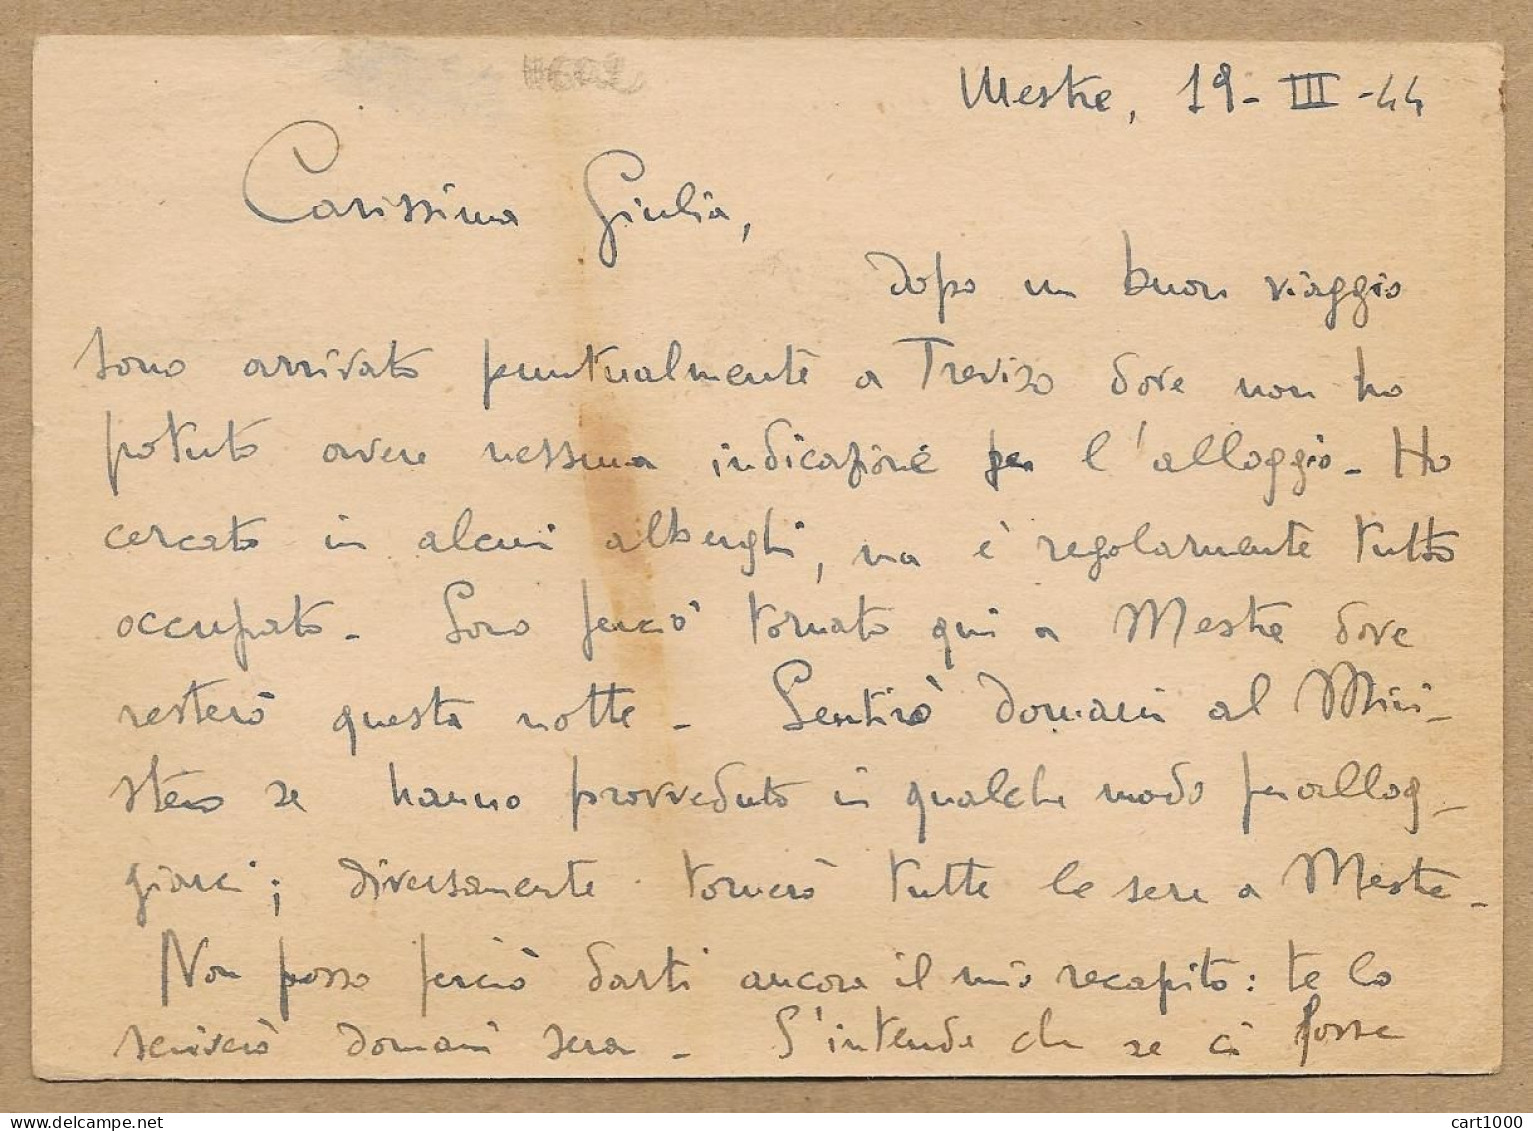 Mestre, 19-III-44
Carissima Giulia,
dopo un buon viaggio
sono arrivato puntualmente a Treviso dove non ho
potuto avere nessuna indicazione per l'alloggio - Ho
cercato in alcuni alberghi, ma è regolarmente tutto
occupato - Sono perciò tornato qui a Mestre dove
resterò questa notte - Sentirò domani al Mini-
stero se hanno provveduto in qualche modo per allog-
giarci; diversamente tornerò tutte le sere a Mestre -
Non posso perciò darti ancora il mio recapito: te lo
scriverò domani sera - S'intende che se ci fosse
www.delcampe.net
cart1000